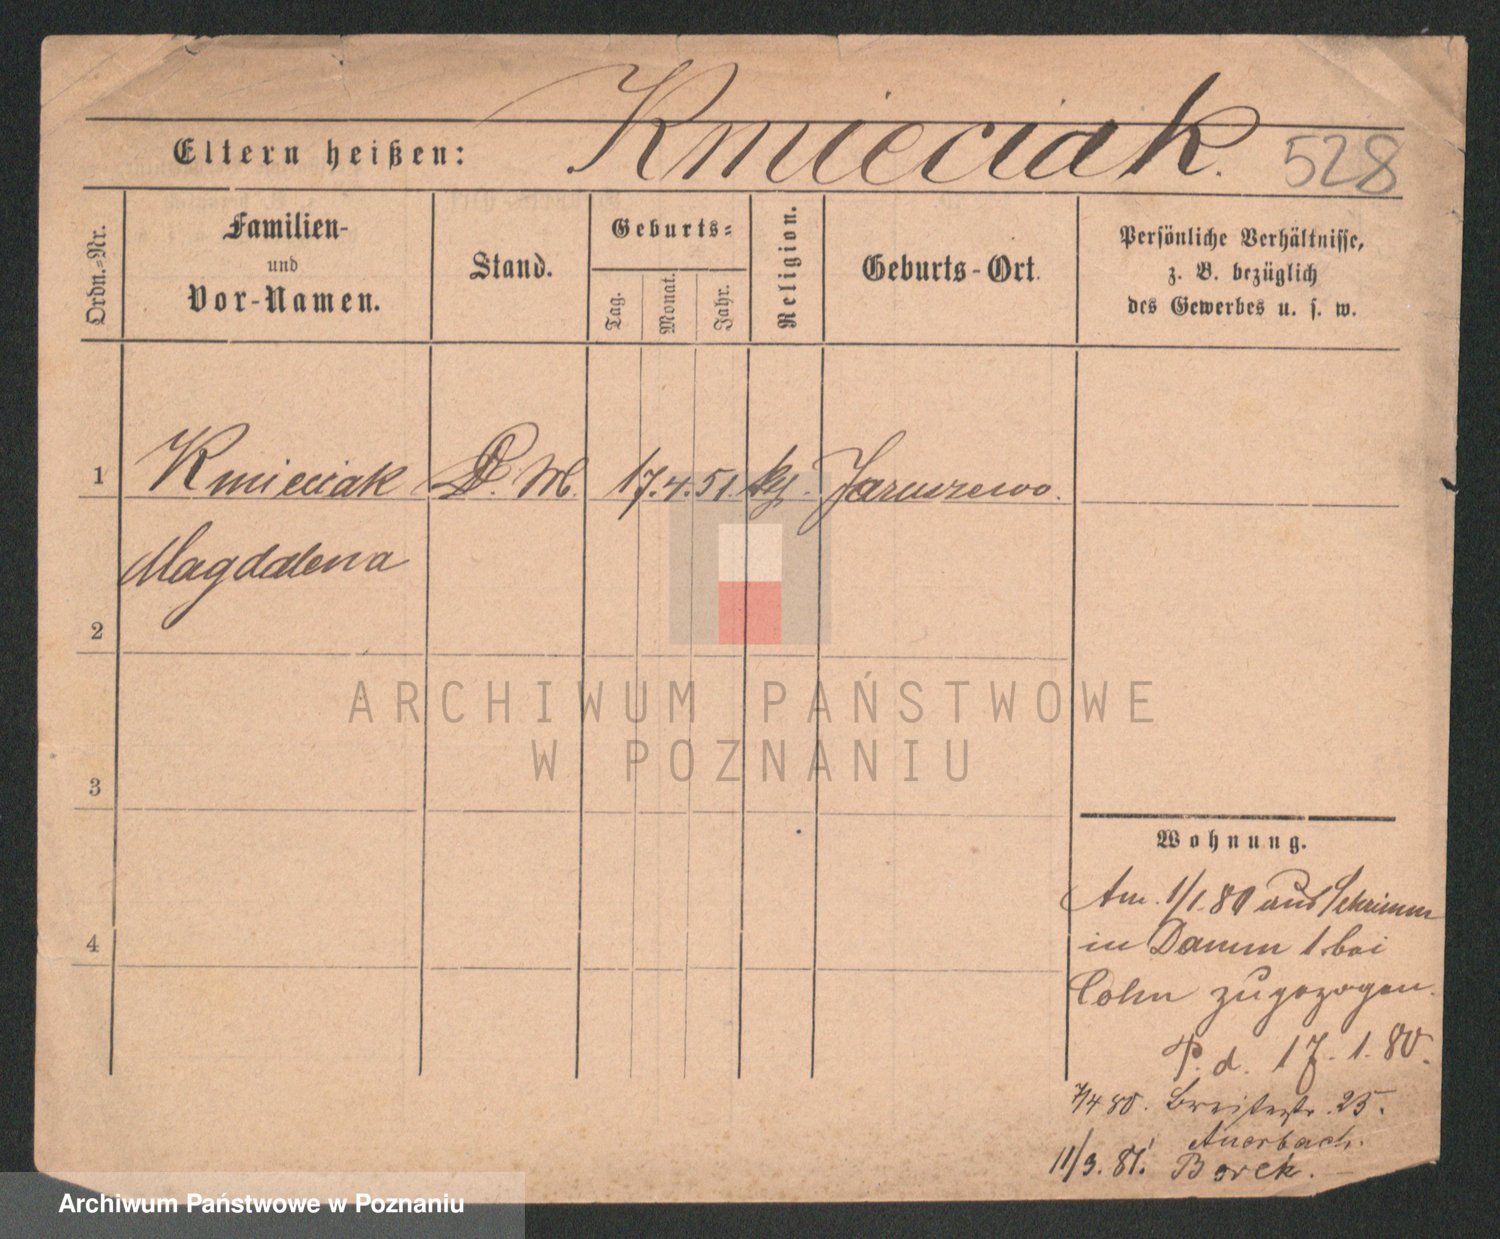 Kmieciak.
528
Eltern heißen:
Ordn.-Nr.
Familien-
und
Vor-Namen.
Stand.
Geburts-
Tag.
Monat.
Jahr.
Religion.
Geburts-Ort.
Persönliche Verhältnisse,
z. B. bezüglich
des Gewerbes u. s. w.
1 Kmieciak D. M. 17. 4. 51. Jaruszewo.
Magdalena
2
3
4
ARCHIWUM PAŃSTWOWE
W POZNANIU
Wohnung.
Am 1/1. 80 aus Schrimm
in Damm 1. bei
Cohn zugezogen.
P. d. 17. 1. 80.
7/4 80. Breitestr. 25.
Auerbach.
11/3. 81. Borek.
Archiwum Państwowe w Poznaniu